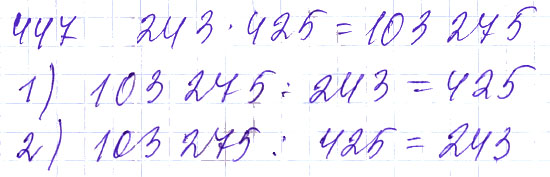 447 243 · 425 = 103 275
1) 103 275 : 243 = 425
2) 103 275 : 425 = 243